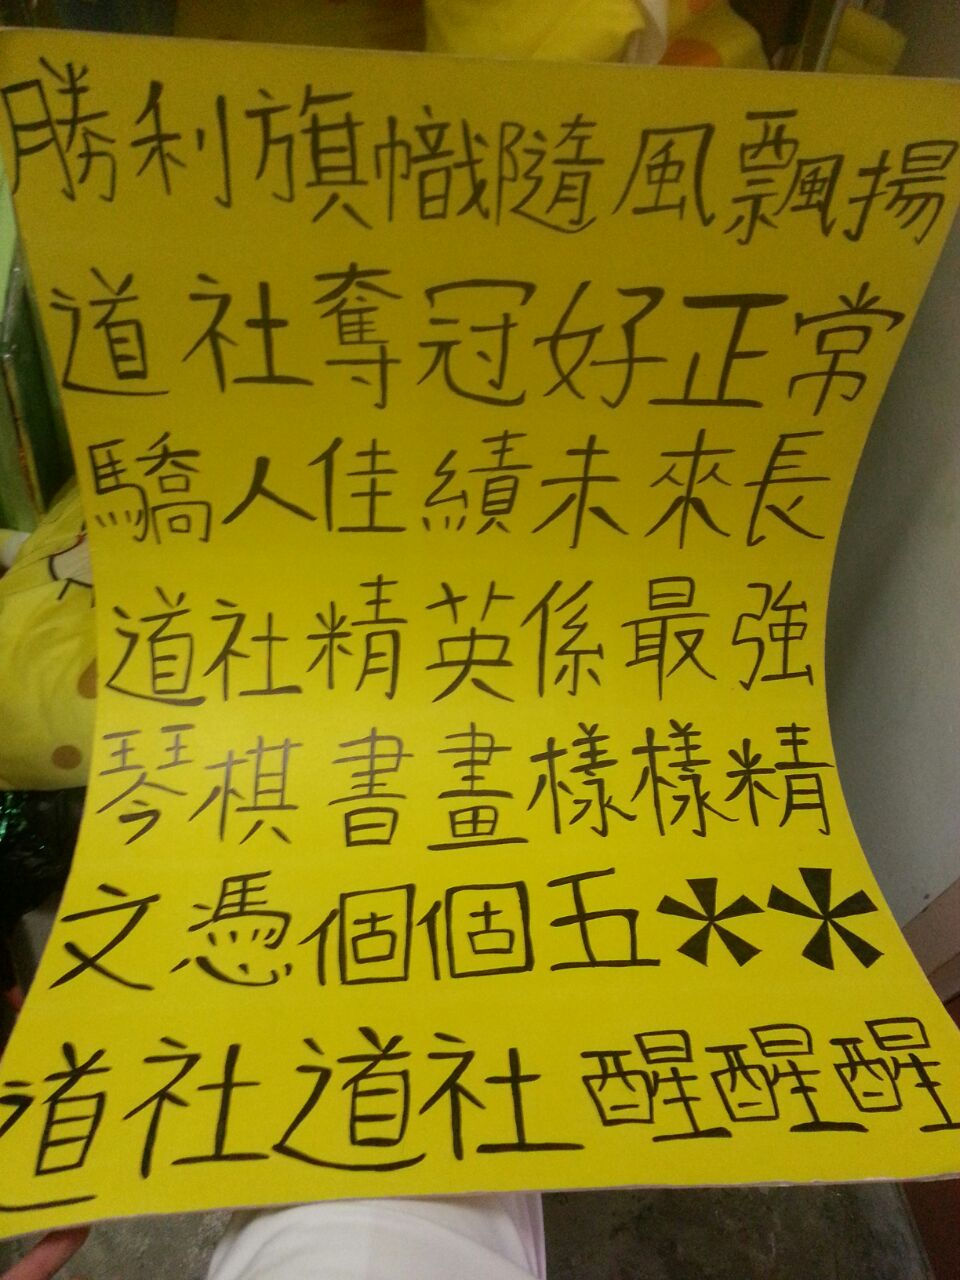 勝利旗幟隨風飄揚
道社奪冠好正常
驕人佳績未來長
道社精英係最強
琴棋書畫樣樣精
文憑個個五**
道社道社醒醒醒